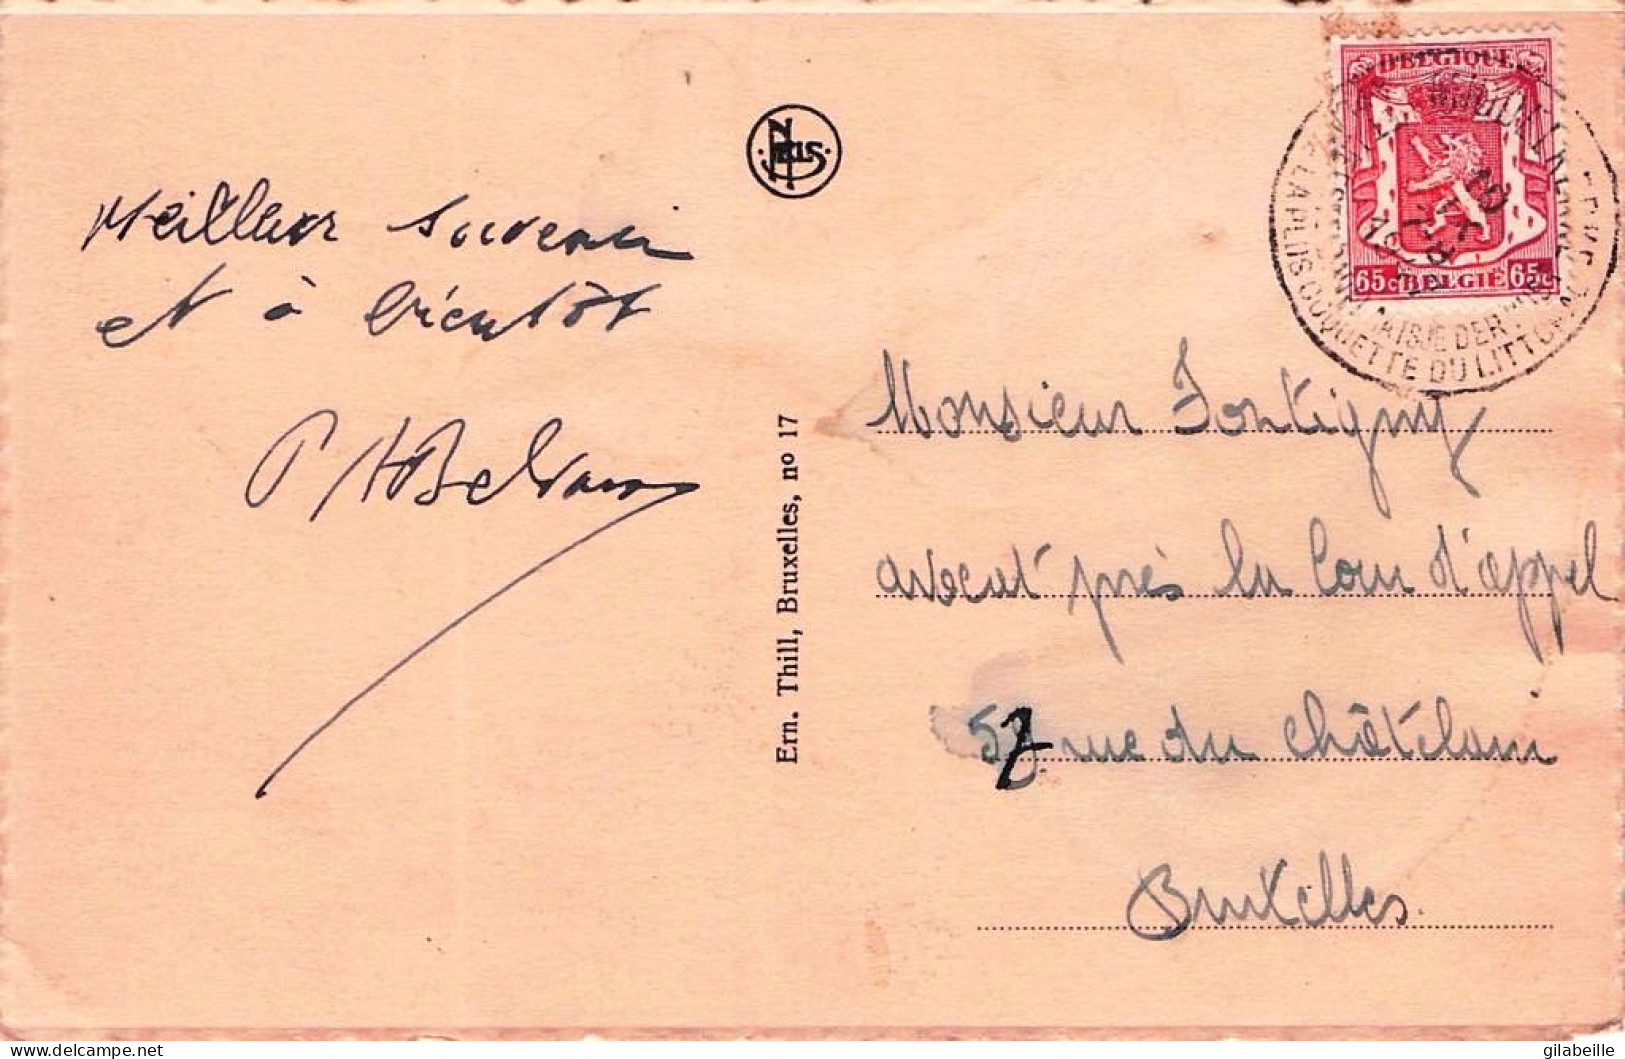 Meilleur souvenir
et à bientôt
NELS
Ern. Thill, Bruxelles, no 17
BELGIQUE
65c BELGIE 65c
LA PLUS COQUETTE DU LITTORAL
Monsieur Fontigny
avocat près la Cour d'appel
57 rue du Châtelain
Bruxelles
gilabeille